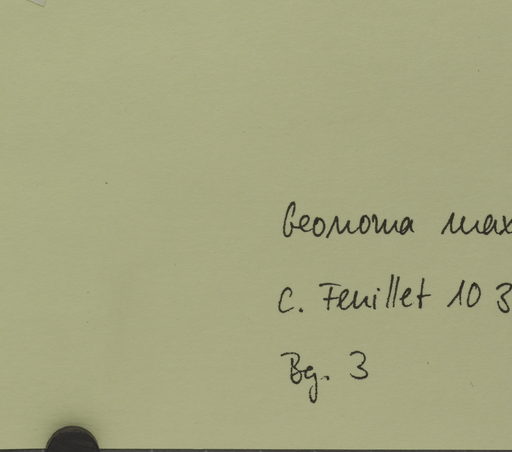 Geonoma max
C. Feuillet 10 3
Bg. 3